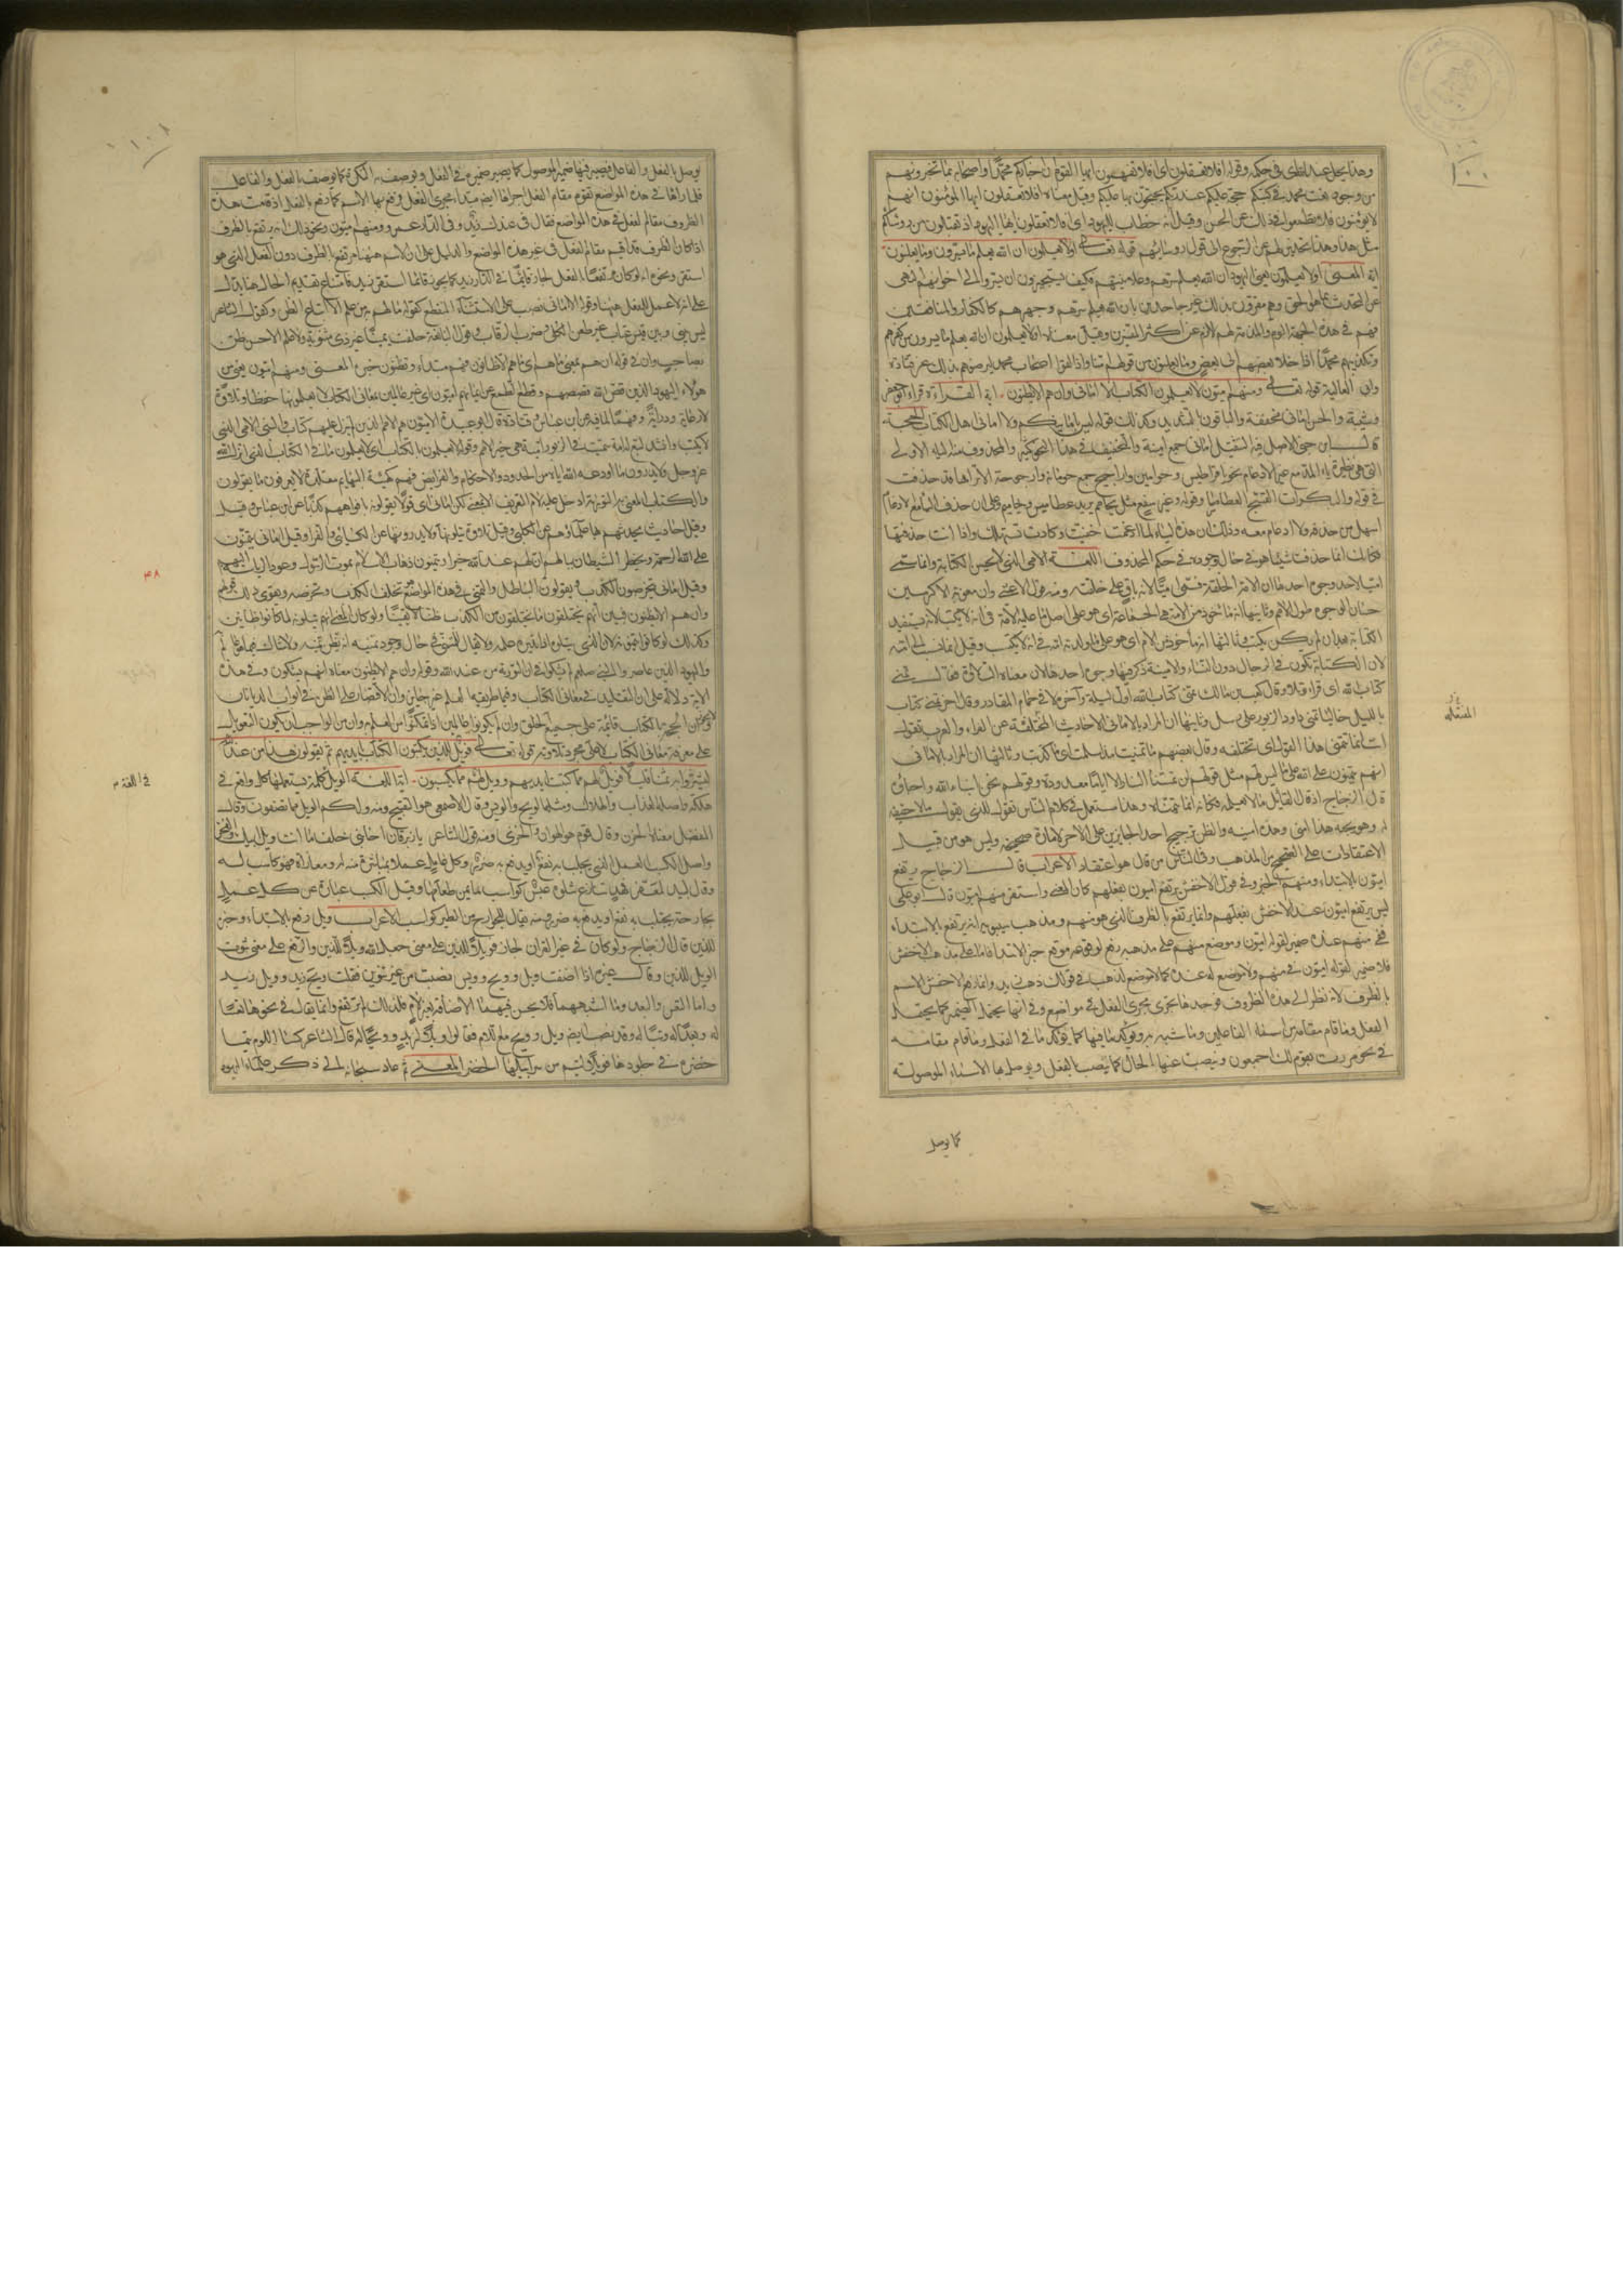 وهذا يحل عند الطبري في حكمه وقوله افلا تعقلون اي افلا تفهمون ايها القوم ان اخباركم محمدا واصحابه بما تخبرونهم
من وجود نعت محمد في كتبكم حجة عليكم عند ربكم يحتجون بها عليكم وقيل معناه افلا تعقلون ايها المؤمنون انهم
لا يؤمنون فلا تطمعوا في ذلك عن الحسن وقيل انه خطاب لليهود اي افلا تعقلون ايها اليهود اذ تقبلون من رؤسائكم
مثل هذا وهذا تحذير لهم عن الرجوع الى قول رؤسائهم قوله تعالى اولا يعلمون ان الله يعلم ما يسرون وما يعلنون
اية المعنى اولا يعلمون يعني اليهود ان الله يعلم سرهم وعلانيتهم فكيف يستجيزون ان يسروا الى اخوانهم النهي
عن التحدث بما هو الحق وهم مقرون بذلك غير جاحدين بان الله يعلم سرهم وجهرهم كالكفار والمنافقين
فهم في هذه الجهة الوم والمذمة لهم الزم عن اكثر المفسرين وقيل معناه اولا يعلمون ان الله يعلم ما يسرون من كفرهم
وتكذيبهم محمدا اذا خلا بعضهم الى بعض وما يعلنون من قولهم امنا اذا لقوا اصحاب محمد ليرضوهم بذلك عن قتادة
وابي العالية قوله تعالى ومنهم اميون لا يعلمون الكتاب الا اماني وان هم الا يظنون اية القراءة قرأ ابو جعفر
وشيبة والحسن اماني مخففة والباقون بالتشديد وكذلك قوله ليس بامانيكم ولا اماني اهل الكتاب الحجة
قال ابن جني الاصل فيه التثقيل اماني جمع امنية والتخفيف في هذا النحو كثير والمحذوف منه الياء الاولى
التي هي نظيرة ياء المد مع غير الادغام نحو قراطيس وحوامين واراجيح جمع حومانة وارجوحة الا تراها قد حذفت
في قوله والبكرات الفسج العطامسا وقوله وغير سفع مثل يحامم يريد عطاميس ويحاميم وعلى ان حذف الياء مع الادغام
اسهل من حذفه ولا ادغام معه وذلك ان هذه الياء لما ادغمت خفيت وكادت تستهلك فاذا انت حذفتها
فكانك انما حذفت شيئا هو في حال وجوده في حكم المحذوف اللغة الامي الذي لا يحسن الكتابة وانما سمي
اميا لاحد وجوه احدها ان الامة الخلقة فسمي اميا لانه باق على خلقته ومنه قول الاعشى وان معوية الاكرمين
حسان الوجوه طوال الامم وثانيها انه ماخوذ من الامة التي هي الجماعة اي هو على اصل ما عليه الامة في انه لا يكتب لانه يستفيد
الكتابة بعد ان لم يكن يكتب وثالثها انه ماخوذ من الام اي هو على ما ولدته امه في انه لا يكتب وقيل انما نسب الى امه
لان الكتابة تكون في الرجال دون النساء والامنية ذكر فيها وجوه احدها ان معناه التلاوة فقال تمنى
كتاب الله اي قرا وتلا وقال كعب بن مالك تمنى كتاب الله اول ليلة وآخره لاقى حمام المقادر وقال اخر تمنى كتاب
بالليل خاليا تمني داود الزبور على رسل وثانيها ان المراد بالاماني الاحاديث المختلقة عن الفراء والعرب تقول
انت انما تتمنى هذا القول اي تختلقه وقال بعضهم ما تمنيت منذ اسلمت اي ما كذبت وثالثها ان المراد بالاماني
انهم يتمنون على الله ما ليس لهم مثل قولهم لن تمسنا النار الا اياما معدودة وقولهم نحن ابناء الله واحباؤه
قال الزجاج اذا قال القايل ما لا يعلمه فكانه انما يتمناه وهذا مستعمل في كلام الناس تقول للذي يقول ما لا حقيقة
له وهو يحبه هذا امنى وهذه امنية والظن ترجيح احد الجايزين على الاخر لامارة صحيحة وليس هو من قبيل
الاعتقادات على الصحيح من المذهب وفي الناس من قال هو اعتقاد الاعراب قال الزجاج يرتفع
اميون بالابتداء ومنهم الخبر وفي قول الاخفش يرتفع اميون بفعلهم كان المعنى واستقر منهم اميون قال ابو علي
ليس يرتفع اميون عند الاخفش بفعلهم وانما يرتفع بالظرف الذي هو منهم ومذهب سيبويه انه يرتفع بالابتداء
ففي منهم عنده ضمير لقوله اميون وموضع منهم على مذهبه رفع لوقوعه موقع خبر الابتداء فاما على مذهب الاخفش
فلا ضمير لقوله اميون في منهم ولا موضع له عنده كما لا موضع لذهب في قولك ذهب زيد وانما رفع الاخفش الاسم
بالظرف لانه نظر الى هذه الظروف فوجدها تجري مجرى الفعل في مواضع وفي انها يحتمل الضمير كما يحتمله
الفعل وما قام مقامه من اسماء الفاعلين وما شبه به ويؤكد ما فيها كما يؤكد ما في الفعل وما قام مقامه
في نحو مررت بقوم لك اجمعون وينصب عنها الحال كما ينصب بالفعل ويوصل بها الاسماء الموصولة
كما يوصل
المسئلة
١٠٠
يوصل بالفعل والفاعل فيصير فيها ضمير الموصول كما يصير ضميره في الفعل ويوصف به النكرة كما يوصف بالفعل والفاعل
فلما راها في هذه المواضع تقوم مقام الفعل اجراها ايضا مبتدأ مجرى الفعل فرفع بها الاسم كما رفع بالفعل اذ قامت هذه
الظروف مقام الفعل في هذه المواضع فقال في عندك زيد وفي الدار عمرو ومنهم اميون ونحو ذلك انه يرتفع بالظرف
اذ كان الظرف قد اقيم مقام الفعل في غير هذه المواضع والدليل على ان الاسم هيهنا مرتفع بالظرف دون الفعل الذي هو
استقر ونحوه انه لو كان مرتفعا بالفعل لجاز قايما في الدار زيد كما يجوز قائما استقر زيد فامتناع تقديم الحال هنا يدل
على انه لا عمل للفعل هيهنا وقوله الا اماني نصب على الاستثناء المنقطع كقوله ما لهم به من علم الا اتباع الظن وكقول الشاعر
ليس بيني وبين قيس عتاب غير طعن الكلى وضرب الرقاب وقول النابغة حلفت يمينا غير ذي مثنوية ولا علم الا حسن ظن
بصاحب وان في قوله ان هم بمعنى ما هم اي ما هم الا ظانون فهم مبتدأ ويظنون خبره المعنى ومنهم اميون يعني من
هؤلاء اليهود الذين قص الله قصصهم وقطع الطمع عن ايمانهم اميون اي غير عالمين بمعاني الكتاب لا يعلمونها حفظا وتلاوة
لا رعاية ودراية وفهما لما فيه عن ابن عباس وقتادة قال ابو عبيدة الاميون هم الامم الذين لم ينزل عليهم كتاب والنبي الامي الذي
لا يكتب وانشد لتبع له امة سميت في الزبور امية هي خير الامم وقوله لا يعلمون الكتاب اي لا يعلمون ما في الكتاب الذي انزله الله
عز وجل ولا يدرون ما اودعه الله اياه من الحدود والاحكام والفرايض فهم كهيئة البهايم مقلدة لا يعرفون ما يقولون
والكتاب المعني به التورية ادخل عليه لام التعريف الا يعني لكن اماني اي قولا يقولونه بافواههم كذبا عن ابن عباس وقيل
وقيل احاديث يحدثهم بها علماؤهم عن الكلبي وقيل تلاوة يتلونها ولا يدرونها عن الكسائي والفرا وقيل اماني يتمنون
على الله الرحمة ويخطر الشيطان ببالهم ان لهم عند الله خيرا ويتمنون ذهاب الاسلام بموت الرسول وعود الرياسة اليهم
وقيل اماني يتخرصون الكذب ويقولون الباطل والتمني في هذه المواضع تخلق الكذب وتخرصه ويقوي ذلك قوله
وان هم الا يظنون فبين انهم يختلقون ما يختلقون من الكذب ظنا لا يقينا ولو كان المعنى انهم يتلونه لما كانوا ظانين
وكذلك لو كانوا يتمنونه لان الذي يتلوه اذا تدبره علمه ولا يقال للمتمني في حال وجود تمنيه انه يظن تمنيه ولا انه شاك فيما هو عالم به
واليهود الذين عاصروا النبي صلعم لم يشكوا في ان التورية من عند الله وقوله وان هم الا يظنون معناه انهم يشكون وفي هذه
الاية دلالة على ان التقليد في معاني الكتاب وفيما طريقه العلم غير جايز وان الاقتصار على الظن في ابواب الديانات
لا يجوز وان الحجة بالكتاب قائمة على جميع الخلق وان لم يكونوا عالمين اذا تمكنوا من العلم به وان من الواجب ان يكون التعويل
على معرفة معاني الكتاب لا على مجرد تلاوته قوله تعالى فويل للذين يكتبون الكتاب بايديهم ثم يقولون هذا من عند الله
ليشتروا به ثمنا قليلا فويل لهم مما كتبت ايديهم وويل لهم مما يكسبون اية اللغة الويل كلمة يستعملها كل واقع في
هلكة واصله العذاب والهلاك ومثله الويح والويس وقال الاصمعي هو التقبيح ومنه ولكم الويل مما تصفون وقال
المفضل معناه الحزن وقال قوم هو الهوان والخزي ومنه قول الشاعر يا زبرقان اخا بني خلف ما انت ويل ابيك والفخر
واصل الكسب العمل الذي يجلب به نفع او يدفع به ضرر وكل عامل عملا بمباشرة منه له ومعاناة فهو كاسب له
وقال لبيد لمعفر قهد تنازع شلوه غبس كواسب لا يمن طعامها وقيل الكسب عبارة عن كل عمل
بجارحة يجتلب به نفع او يدفع به ضرر ومنه يقال للجوارح من الطير كواسب الاعراب ويل رفع بالابتداء وخبره
للذين قال الزجاج ولو كان في غير القران لجاز فويلا للذين على معنى جعل الله ويلا للذين والرفع على معنى ثبوت
الويل للذين وقال غيره اذا اضفت ويل وويح وويس نصبت من غير تنوين فقلت ويح زيد وويل زيد
واما التعس والبعد وما اشبههما فلا يحسن فيهما الاضافة بغير لام فلذلك لم ترفع وانما يقال في نحوها تعسا
له وبعدا له وتبا له وقد نصب ايضا ويل وويح مع اللام فقالوا ويلا لزيد وويحا له قال الشاعر كسا اللوم تيما
خضرة في جلودها فويلا لتيم من سرابيلها الخضر المعنى ثم عاد سبحانه الى ذكر علماء اليهود
٤٨